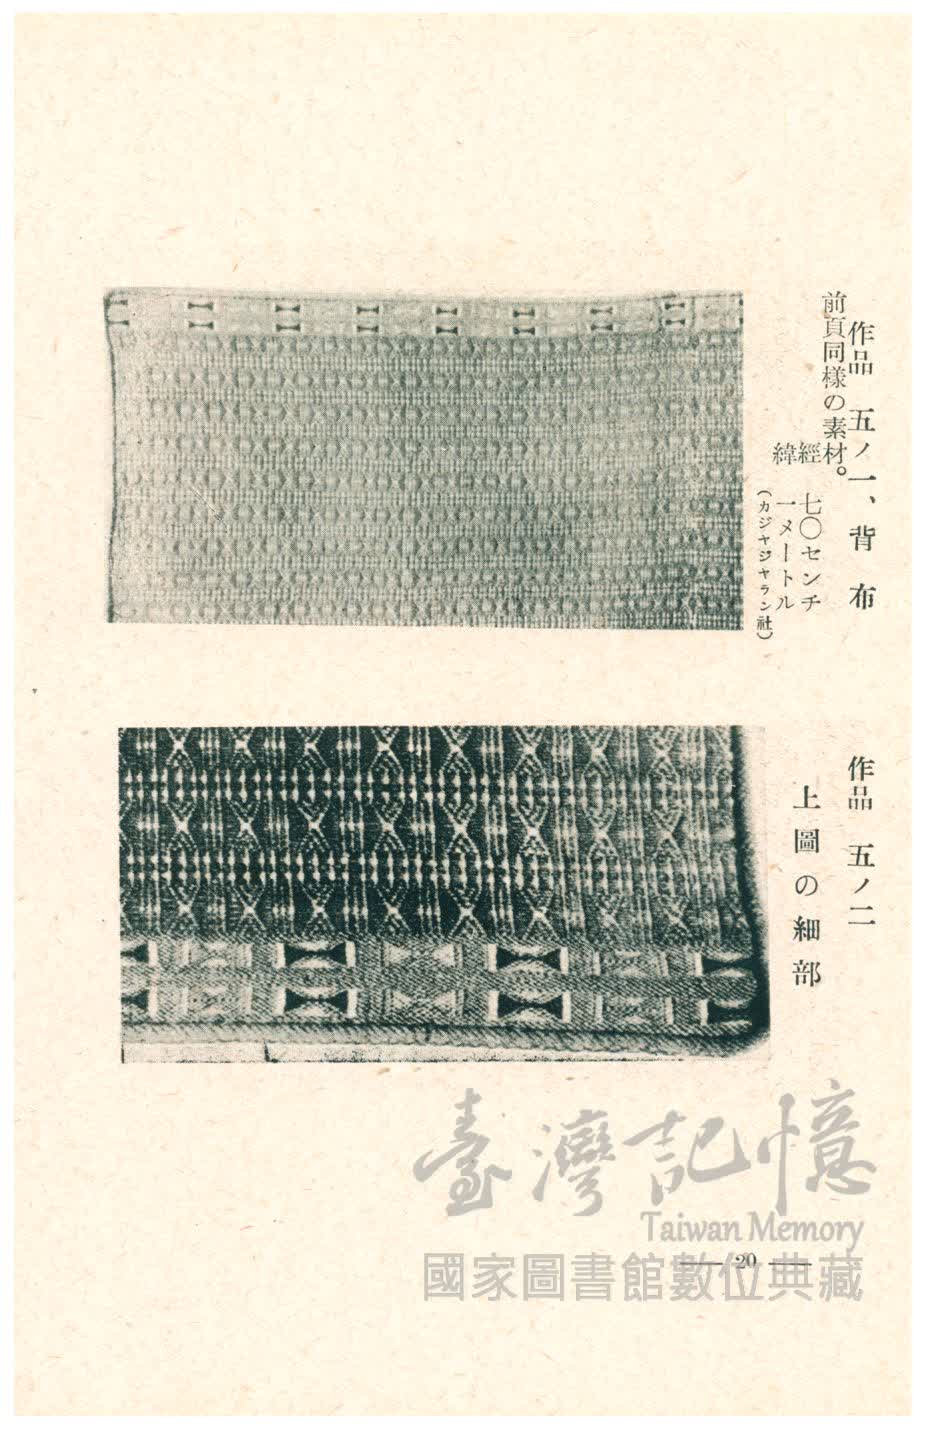 作品 五ノ一、背布
前頁同樣の素材。
經 七〇センチ
緯 一メートル
(カジヤジヤラン社)
作品 五ノ二
上圖の細部
臺灣記憶
Taiwan Memory
國家圖書館數位典藏
— 20 —